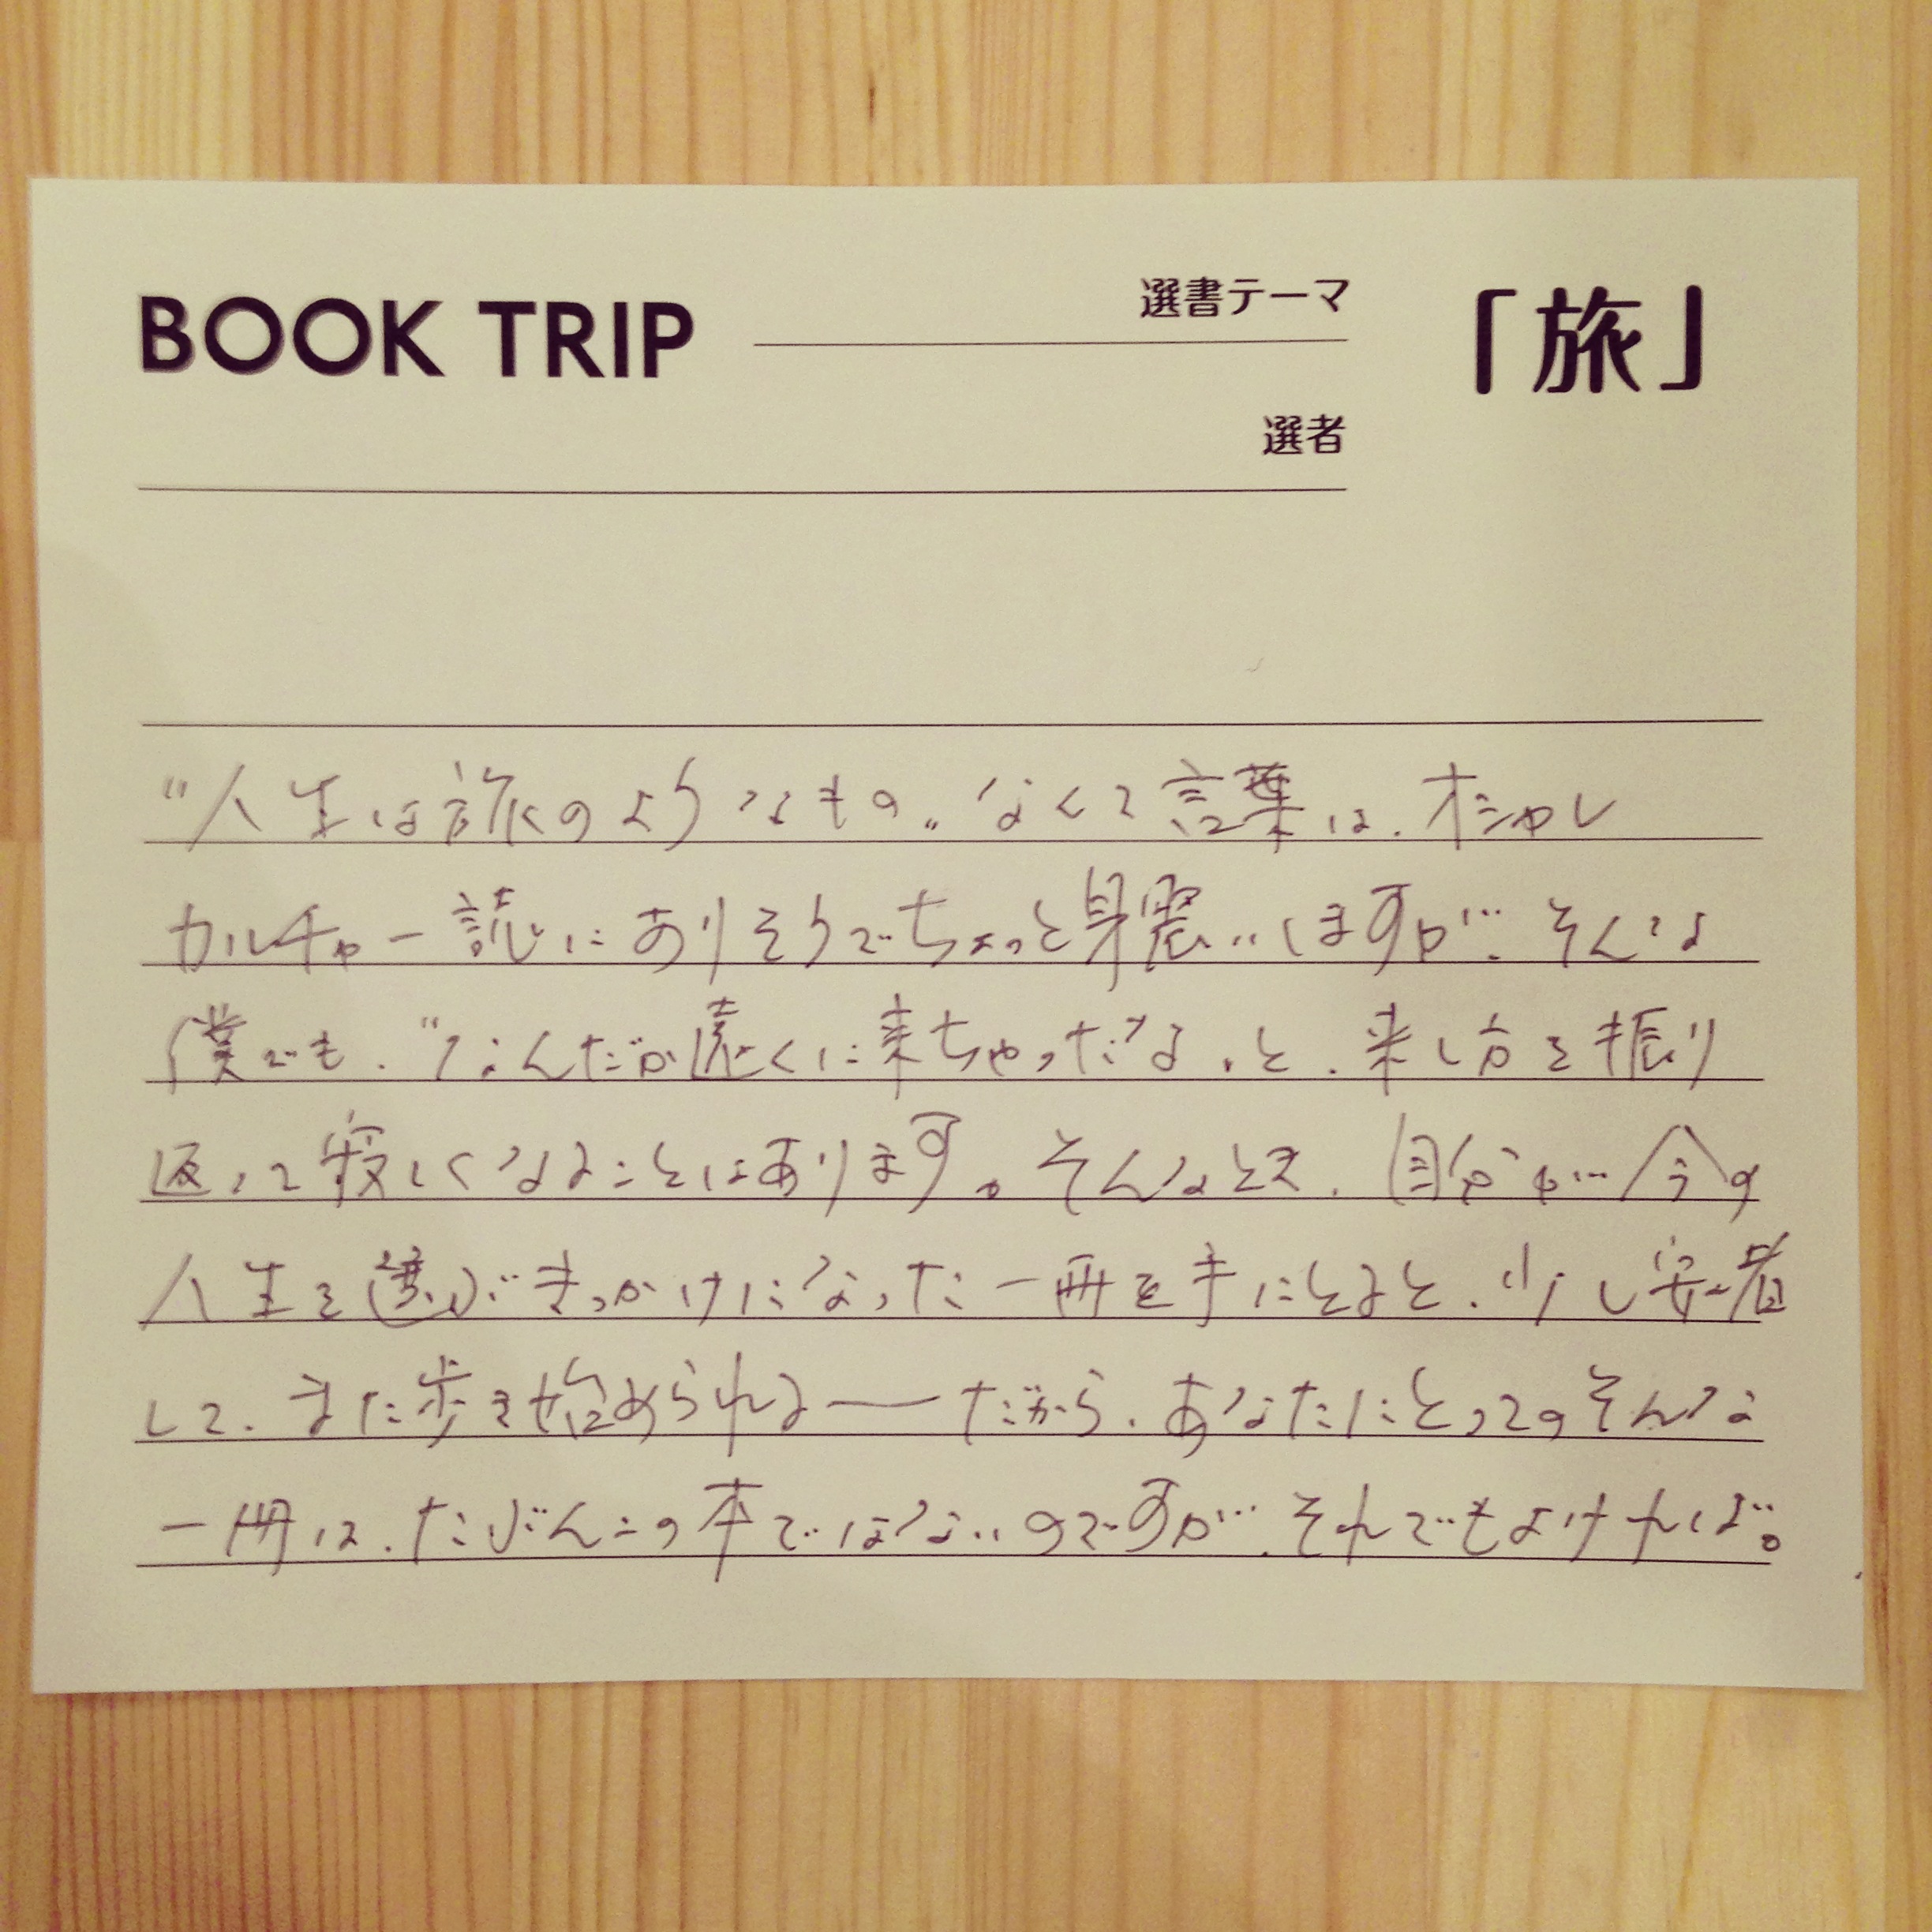 BOOK TRIP
選書テーマ
「旅」
選者
"人生は旅のようなもの〟なんて言葉は、オシャレ
カルチャー誌にありそうでちょっと身震いしますが、そんな
僕でも、"なんだか遠くに来ちゃったな〟と、来し方を振り
返って寂しくなることはあります。そんなとき、自分が今の
人生を選ぶきっかけになった一冊を手にとると、少し安着
して、また歩き始められる——だから、あなたにとってのそんな
一冊は、たぶんこの本ではないのですが、それでもよければ。